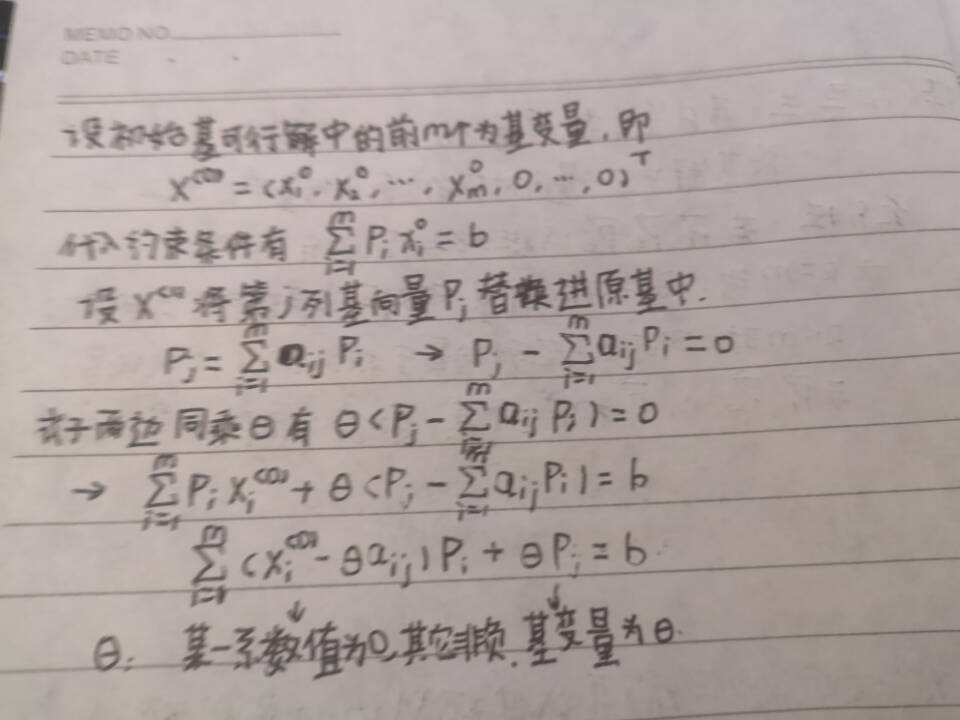 MEMO NO.
DATE
设初始基可行解中的前m个为基变量，即
X⁽⁰⁾ = (x₁⁰, x₂⁰, …, xₘ⁰, 0, …, 0)ᵀ
代入约束条件有 ∑ᵢ₌₁ᵐ Pᵢ xᵢ⁰ = b
设 X⁽¹⁾ 将第j列基向量 Pⱼ 替换进原基中.
Pⱼ = ∑ᵢ₌₁ᵐ aᵢⱼ Pᵢ → Pⱼ - ∑ᵢ₌₁ᵐ aᵢⱼ Pᵢ = 0
式子两边同乘θ有 θ(Pⱼ - ∑ᵢ₌₁ᵐ aᵢⱼ Pᵢ) = 0
→ ∑ᵢ₌₁ᵐ Pᵢ xᵢ⁽⁰⁾ + θ(Pⱼ - ∑ᵢ₌₁ᵐ aᵢⱼ Pᵢ) = b
∑ᵢ₌₁ᵐ (xᵢ⁽⁰⁾ - θaᵢⱼ) Pᵢ + θPⱼ = b
↓ ↓
θ: 某一系数值为0,其它非负. 基变量为θ.